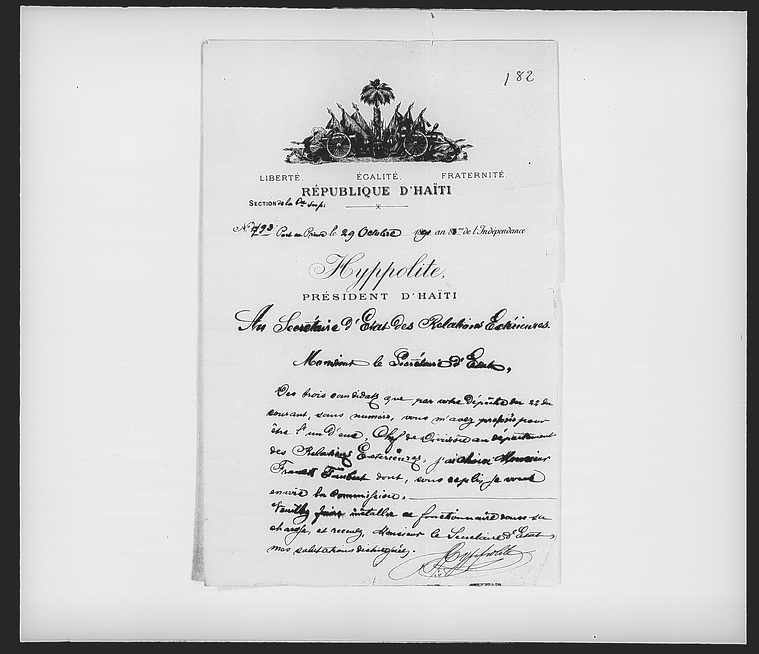 182
LIBERTÉ. ÉGALITÉ. FRATERNITÉ.
RÉPUBLIQUE D'HAÏTI
SECTION de la
Nº 793 Port au Prince le 29 Octobre an de l'Indépendance
Hyppolite,
PRÉSIDENT D'HAÏTI
Au Secrétaire d'Etat des Relations Extérieures
Monsieur le Secrétaire d'Etat,
Des trois candidats que par votre dépêche du 22 du
courant, sans numéro, vous m'avez proposés pour
être l'un d'eux, Chef de Division au département
des Relations Extérieures, j'ai choisi Monsieur
dont, sous ce pli, je vous
envoie la commission.
Veuillez faire installer ce fonctionnaire dans sa
charge, et recevez, Monsieur le Secrétaire d'Etat
mes salutations distinguées.
Hyppolite